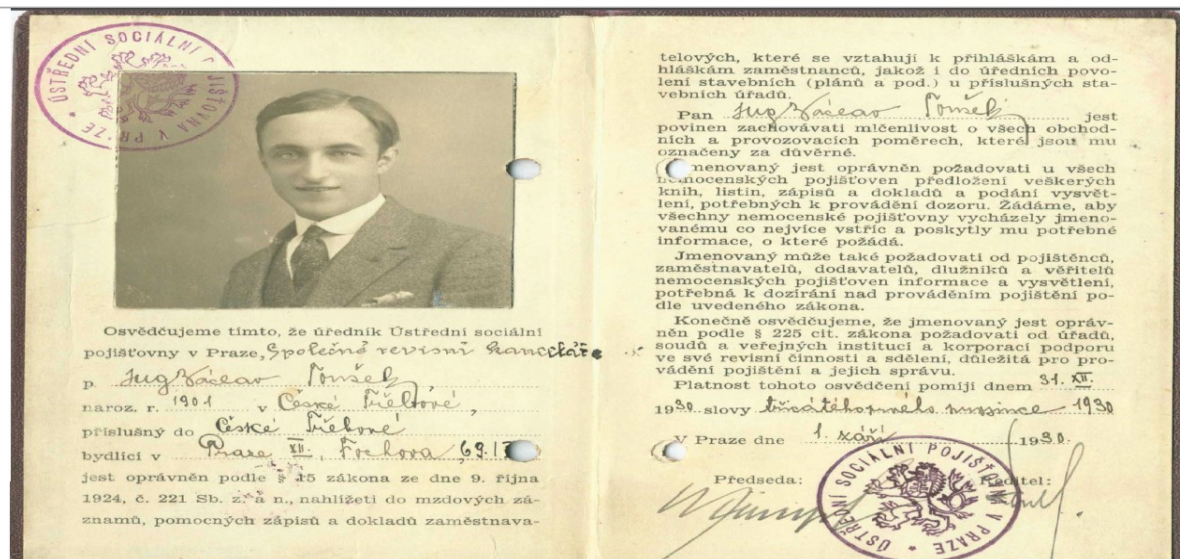 ÚSTŘEDNÍ SOCIÁLNÍ POJIŠŤOVNA V PRAZE
Osvědčujeme tímto, že úředník Ústřední sociální
pojišťovny v Praze, Společné revisní kanceláře
p. Ing Václav
naroz. r. 1901 v České Třebové,
příslušný do České Třebové
bydlící v Praze XII, Fochova, 69.
jest oprávněn podle § 15 zákona ze dne 9. října
1924, č. 221 Sb. z. a n., nahlížeti do mzdových zá-
znamů, pomocných zápisů a dokladů zaměstnava-
telových, které se vztahují k přihláškám a od-
hláškám zaměstnanců, jakož i do úředních povo-
lení stavebních (plánů a pod.) u příslušných sta-
vebních úřadů.
Pan Ing Václav jest
povinen zachovávati mlčenlivost o všech obchod-
ních a provozovacích poměrech, které jsou mu
označeny za důvěrné.
Jmenovaný jest oprávněn požadovati u všech
nemocenských pojišťoven předložení veškerých
knih, listin, zápisů a dokladů a podání vysvět-
lení, potřebných k provádění dozoru. Žádáme, aby
všechny nemocenské pojišťovny vycházely jmeno-
vanému co nejvíce vstříc a poskytly mu potřebné
informace, o které požádá.
Jmenovaný může také požadovati od pojištěnců,
zaměstnavatelů, dodavatelů, dlužníků a věřitelů
nemocenských pojišťoven informace a vysvětlení,
potřebná k dozírání nad prováděním pojištění po-
dle uvedeného zákona.
Konečně osvědčujeme, že jmenovaný jest opráv-
něn podle § 225 cit. zákona požadovati od úřadů,
soudů a veřejných institucí a korporací podporu
ve své revisní činnosti a sdělení, důležitá pro pro-
vádění pojištění a jejich správu.
Platnost tohoto osvědčení pomíjí dnem 31. XII.
1930 slovy třicátéhoprvého prosince 1930
V Praze dne 1. září 1930.
Předseda: Ředitel:
ÚSTŘEDNÍ SOCIÁLNÍ POJIŠŤOVNA V PRAZE